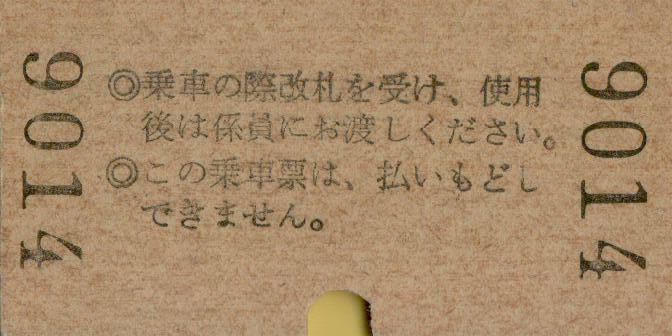 9014
◎乗車の際改札を受け、使用
後は係員にお渡しください。
◎この乗車票は、払いもどし
できません。
9014